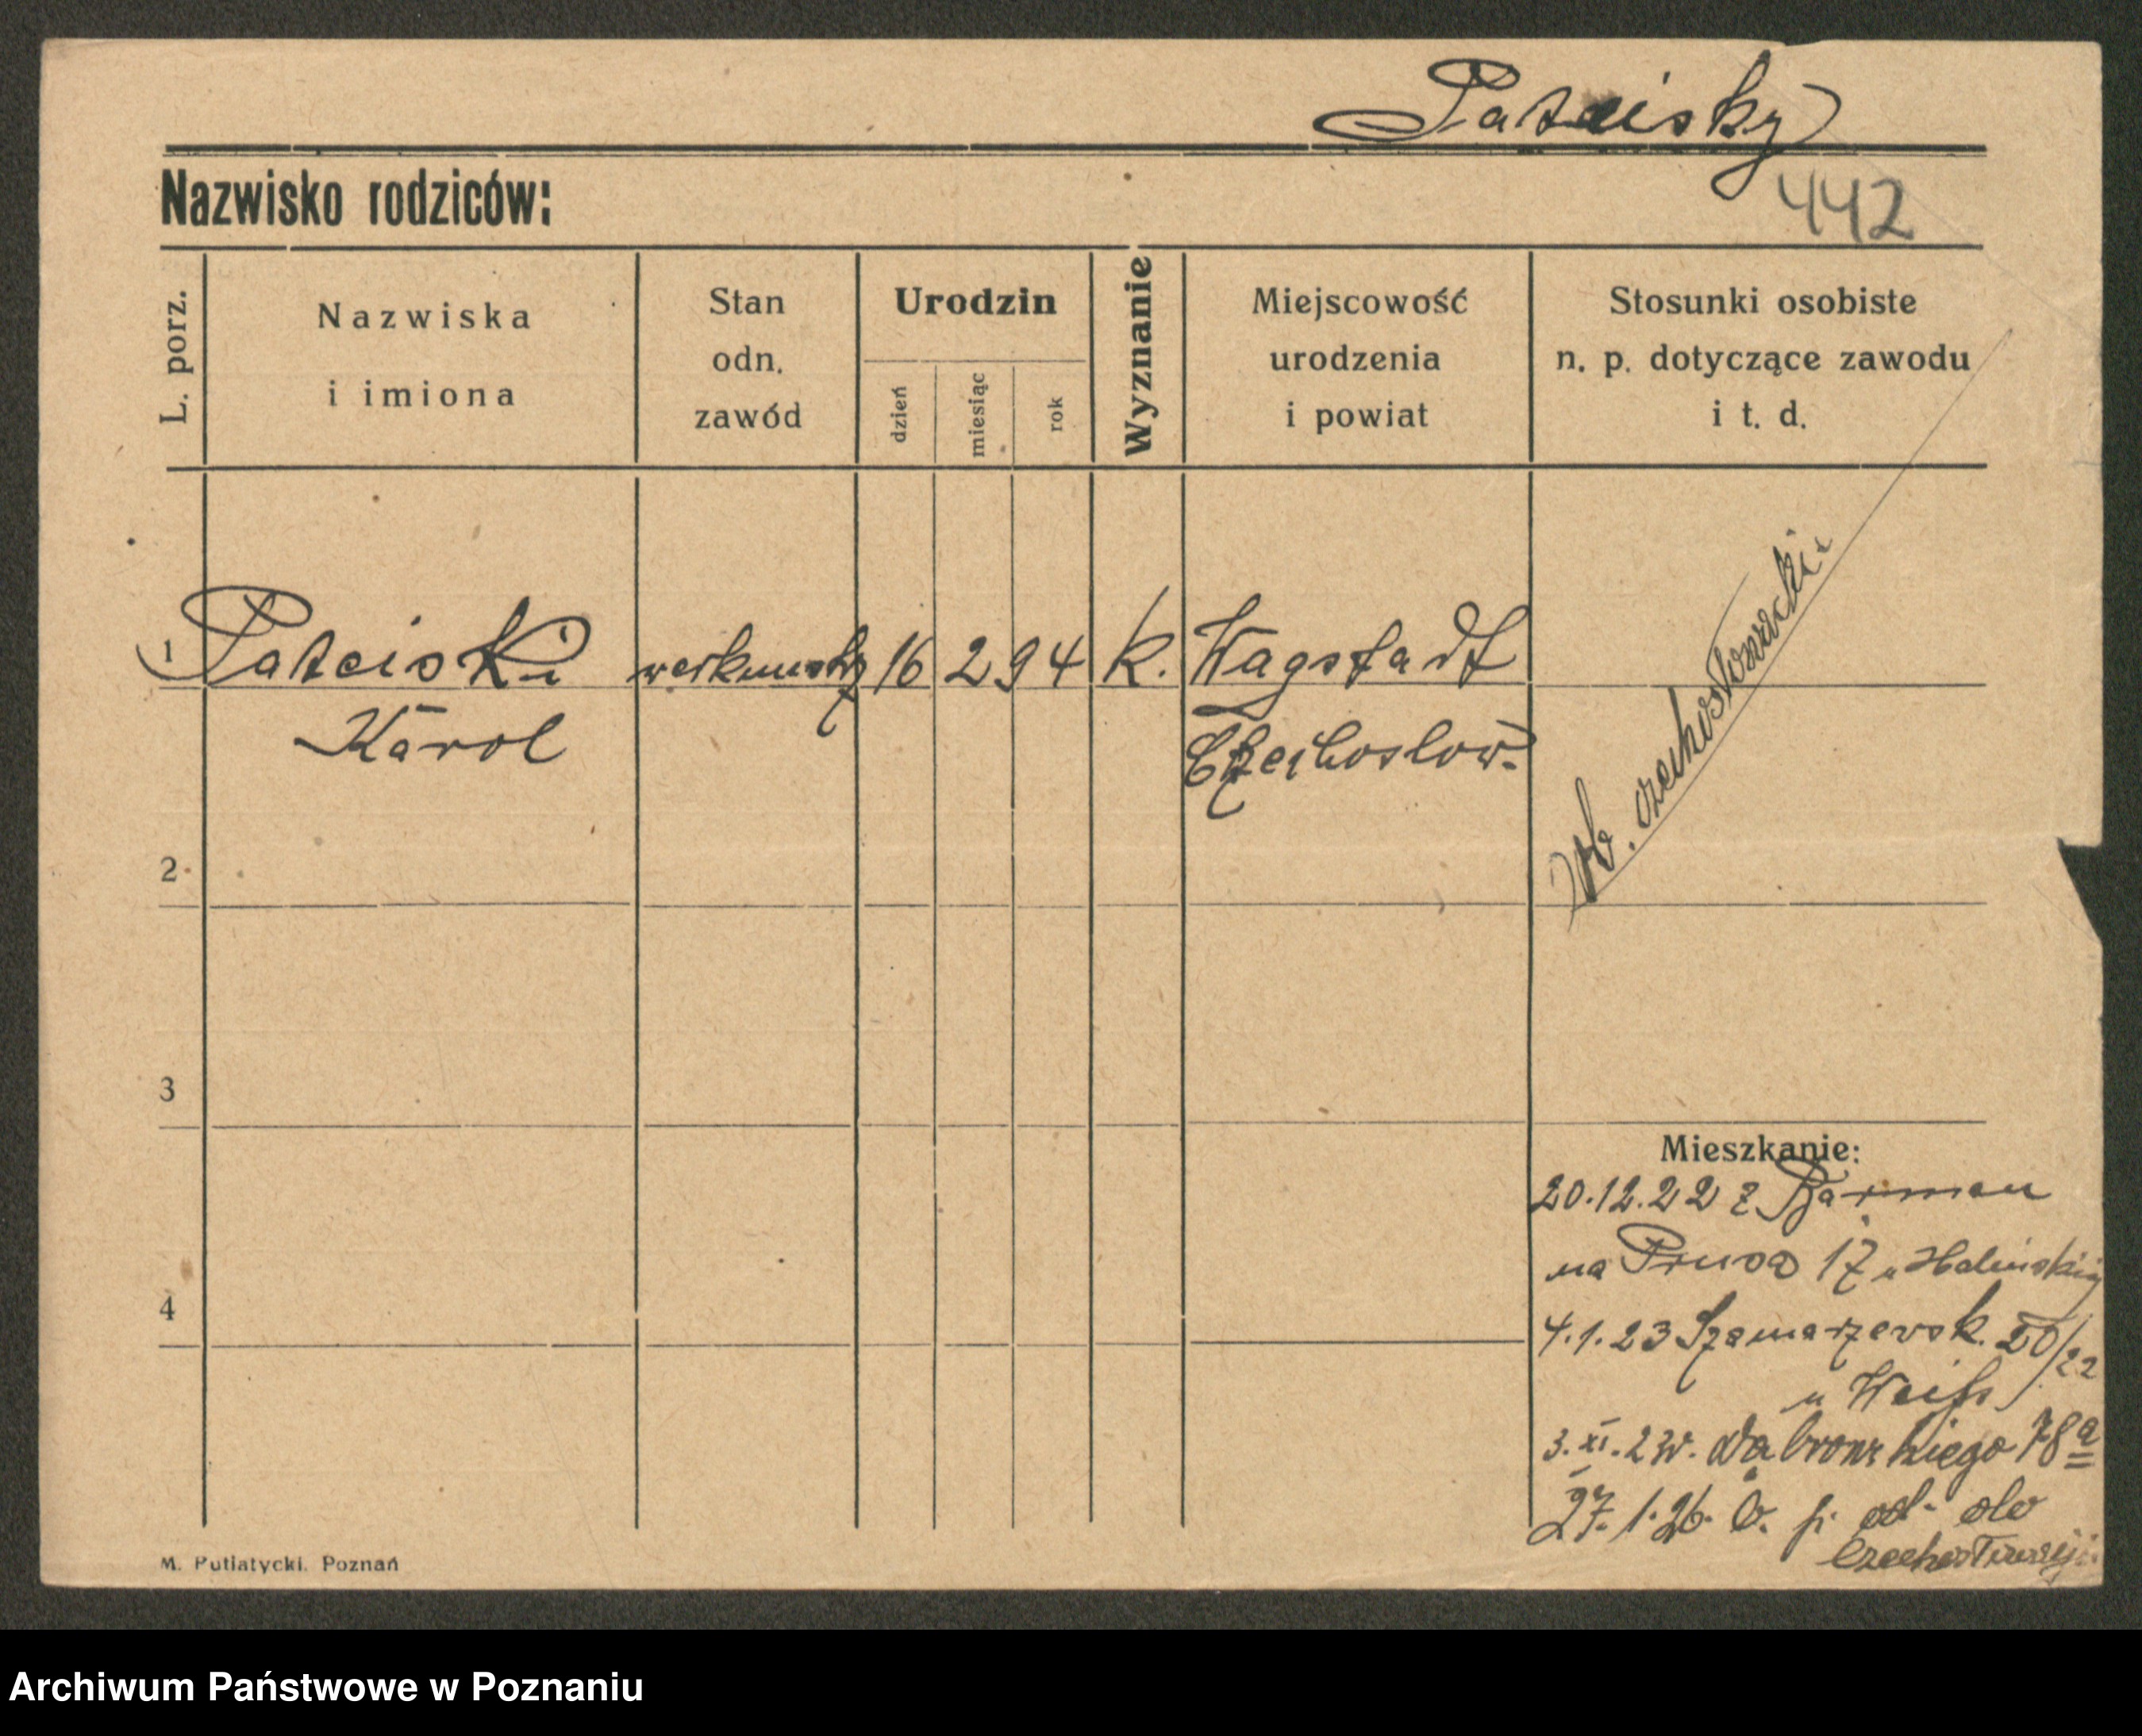 Pateisky
Nazwisko rodziców:
442
L. porz.
Nazwiska
i imiona
Stan
odn.
zawód
Urodzin
dzień
miesiąc
rok
Wyznanie
Miejscowość
urodzenia
i powiat
Stosunki osobiste
n. p. dotyczące zawodu
i t. d.
1 Pateiski 16 2 94 k. Wagstadt
Karol Czechoslow.
czechosłowacki
2
3
4
Mieszkanie:
20.12.22 z Barmen
na Prusa 17 u
4.1.23 Szamarzewsk. 20/22
u Weiß
3.XI.23 r. Dąbrowskiego 78a
27.1.26. od. do
Czechosłowacji
M. Putiatycki. Poznań
Archiwum Państwowe w Poznaniu